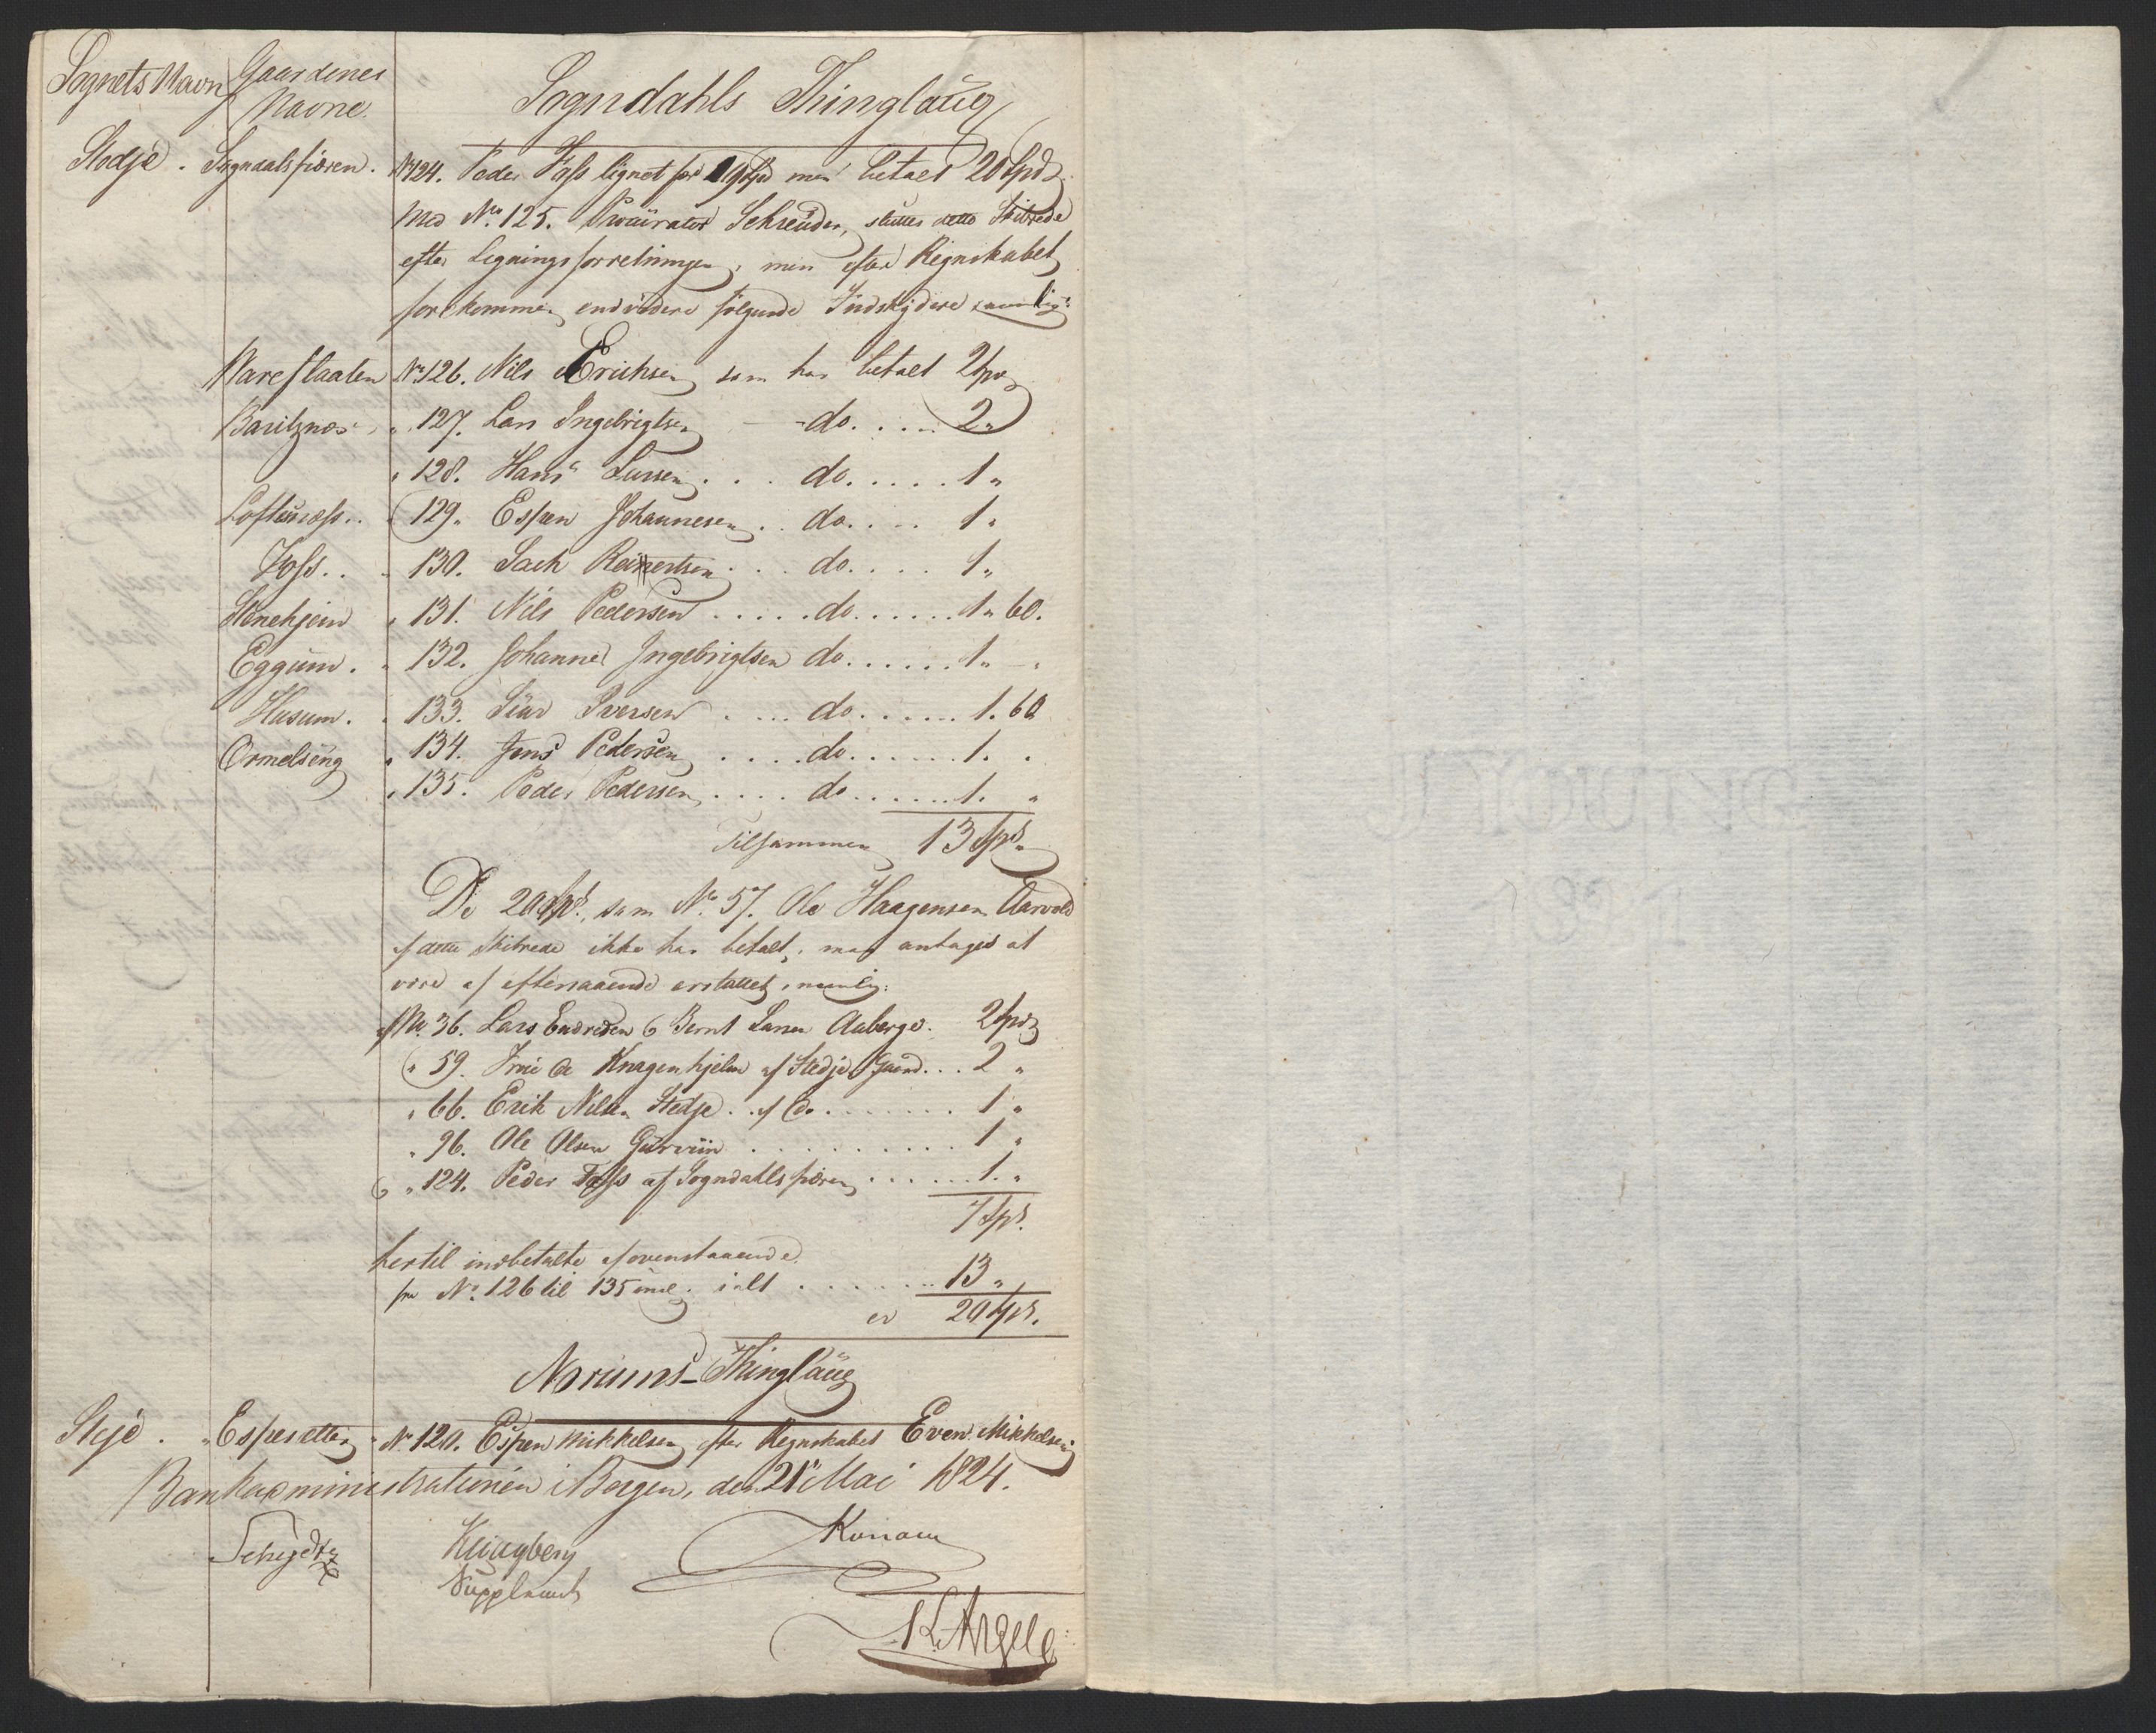 Sognets Navn Gaardenes Navne.
Sogndahls Thinglaug
Stedje . Sogndalsfiøren . No 124. Peder Foss lignet for 19 Spd men betalt 20 Spd.
Med No. 125. Procurator Schreuder, sluttes dette Skibrede
efter Ligningsforretningen, men efter Regnskabet
forekommer endvidere følgende Indskydere, nemlig:
Nareflaaten No 126. Nils Erichsen som har betalt 2 Spd
Baritznæs „ 127. Lars Ingebrigtsen - do. .... 2 „
„ 128. Hans Larsen . . . do. .... 1 „
Loftesnæss .. „ 129. Espen Johannesen . . do. ... 1 „
Foss . . „ 130. Reinertsen . . . do. ... 1 „
Stenehjem „ 131. Nils Pedersen . . . . . do. ..... 1 „ 60.
Eggum . „ 132. Johannes Ingebrigtsen do. ..... 1 „ - „
Husum . „ 133. Siur Iversen .... do. ..... 1. 60
Ormelseng „ 134. Jens Pedersen .... do. ..... 1. .
„ 135. Peder Pedersen .... do. ..... 1. „
Tilsammen 13 Spd. „
De 20 Spd., som No. 57. Ole Haagensen Aarvold
af dette Skibrede ikke har betalt, maa antages at
være af efternævnte erstattet, nemlig:
af No. 36. Lars Endresen & Bernt Larsen Aaberge. 2 Spd
„ 59. Knagenhjelm af Stedje Gaard . . . 2 „
„ 66. Erik Nilsen Stedje . . af do ....... 1 „
„ 96. Ole Olsen Gurvin . . . . . . . . . 1 „
& „ 124. Peder Foss af Sogndahlsfiøren ...... 1. „
7 Spd.
hertil indbetalte af ovenstaaende
fra No. 126 til 135 incl. ialt ........ 13 „
er 20 Spd.
Norums-Thinglaug
Steje . „ Espesætter „ No 120. Espen Mikkelsen efter Regnskabet Even Mikkelsen
Bankadministrationen i Bergen, den 21de Mai 1824.
Schydtz Klingberg Konow
Suppleant